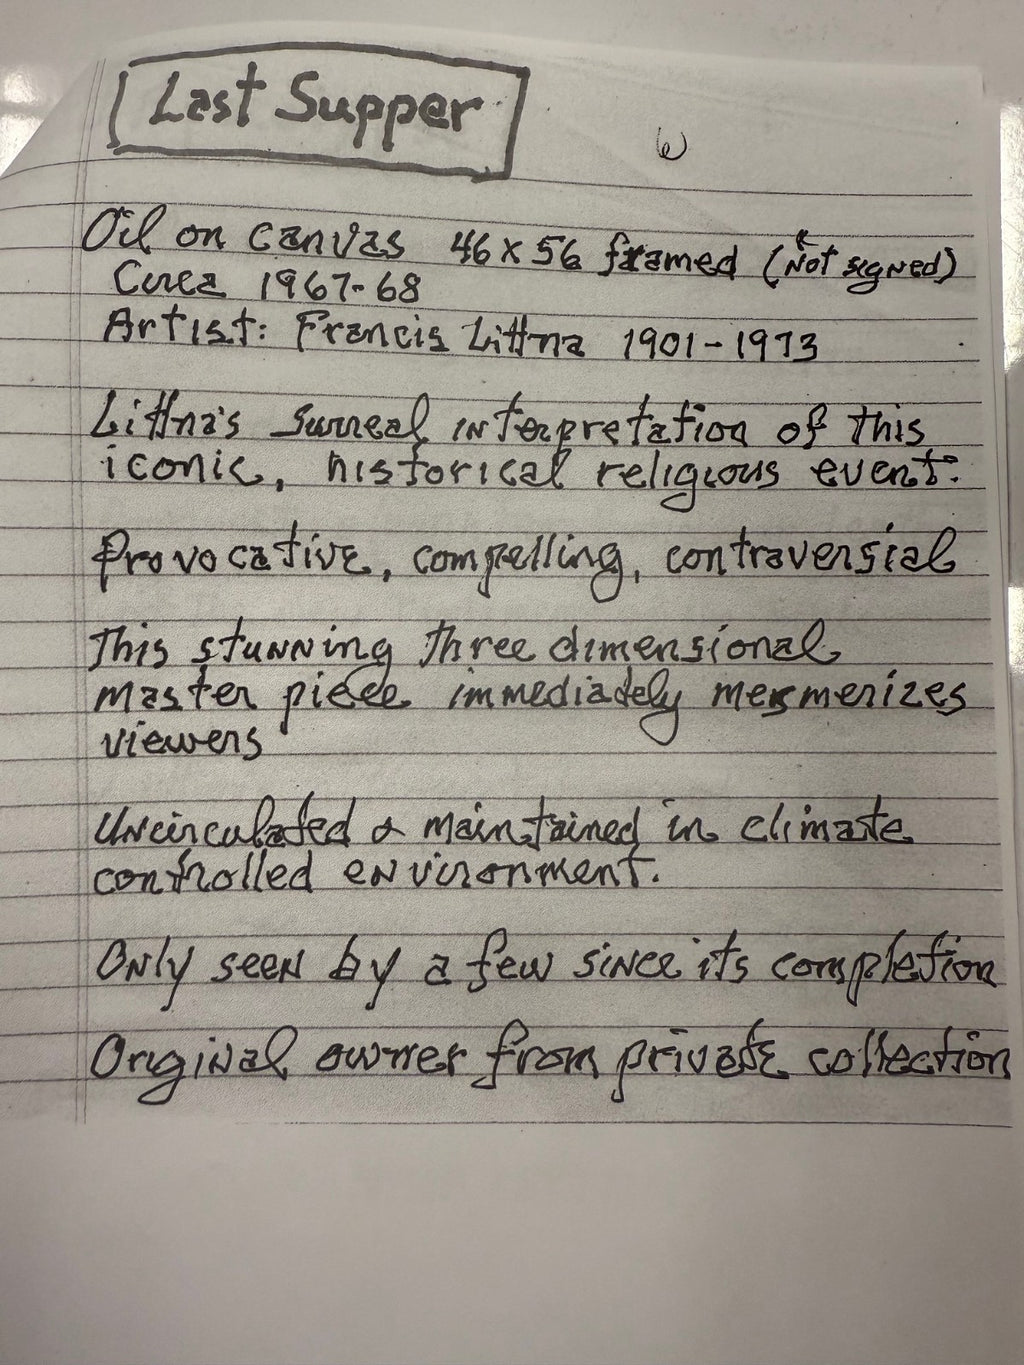 Last Supper
Oil on canvas 46 x 56 framed (Not signed)
Circa 1967-68
Artist: Francis Littna 1901-1973
Littna's surreal interpretation of this
iconic, historical religious event.
Provocative, compelling, contraversial
This stunning three dimensional
master piece immediately mesmerizes
viewers
Uncirculated & maintained in climate
controlled environment.
Only seen by a few since its completion
Original owner from private collection